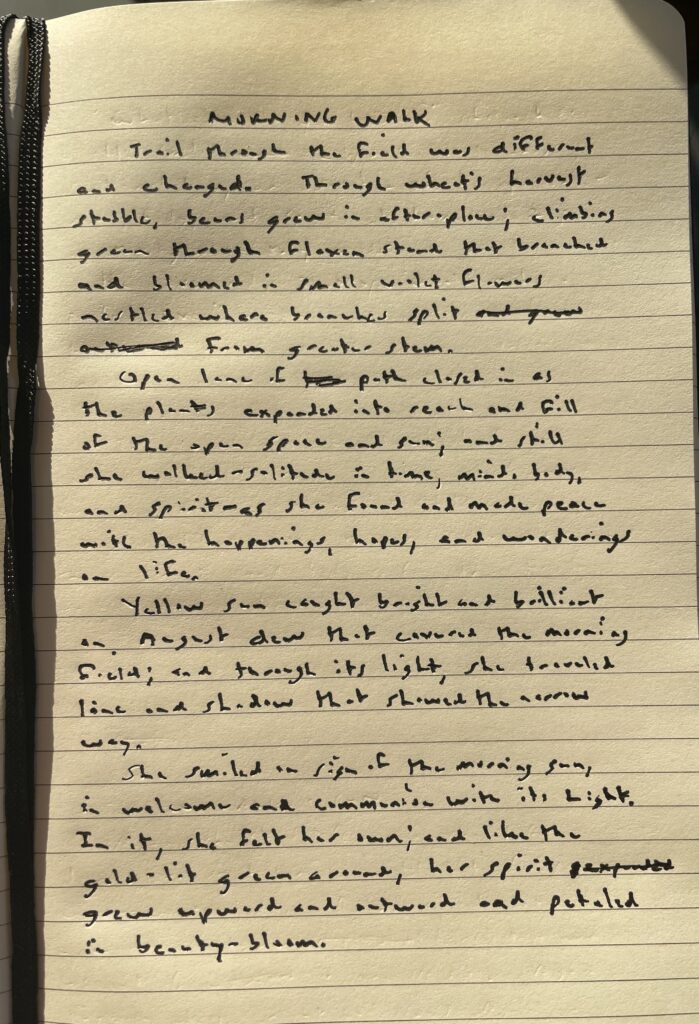 MORNING WALK
Trail through the field was different
and changed. Through wheat's harvest
stubble, beans grew in after-plow; climbing
green through flaxen stand that branched
and bloomed in small violet flowers
nestled where branches split and grew
outward from greater stem.
Open lane of path closed in as
the plants expanded into reach and fill
of the open space and sun; and still
she walked-solitude in time, mind, body,
and spirit-as she found and made peace
with the happenings, hopes, and wonderings
on life.
Yellow sun caught bright and brilliant
on August dew that covered the morning
field; and through its light, she traveled
line and shadow that showed the narrow
way.
She smiled on sign of the morning sun,
in welcome and communion with its light.
In it, she felt her own; and like the
gold-lit green around, her spirit expanded
grew upward and outward and petaled
in beauty-bloom.